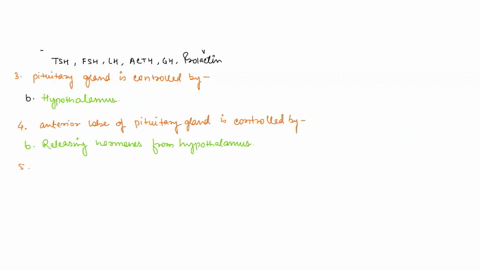 TSH, FSH, LH, ACTH, GH, Prolactin
3. pituitary gland is controlled by-
b. Hypothalamus.
4. anterior lobe of pituitary gland is controlled by-
b. Releasing hormones from hypothalamus.
5.